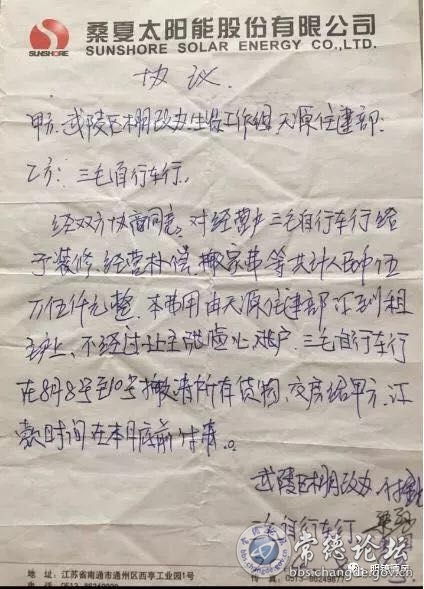 桑夏太阳能股份有限公司
SUNSHORE
SUNSHORE SOLAR ENERGY CO.,LTD.
协议
甲方：武陵区棚改办 工作组 天源住建部
乙方：三毛自行车行
经双方协商同意。对经营户三毛自行车行给
予装修、经营补偿、搬家费等共计人民币伍
万伍仟元整。本费用由天源住建部 到租
不经过 三毛自行车行
在8月8号至10号搬清所有货物，交房给甲方。汇
款时间在本月底前付清。
武陵区棚改办
三毛自行车行
常德论坛
bbs.changde.net
地 址：江苏省南通市通州区西亭工业园1号
传真：0513-